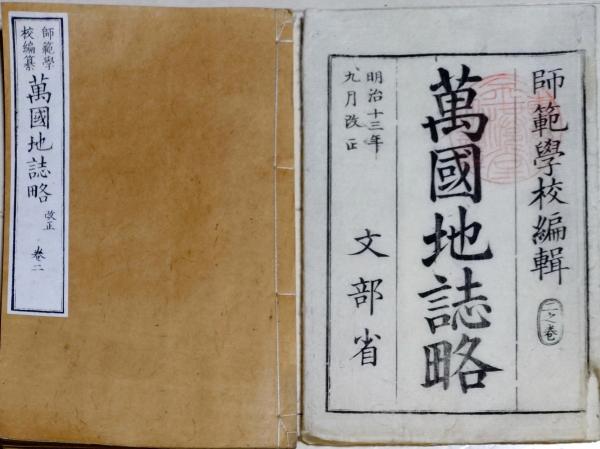 師範學
校編纂
萬國地誌略
改正
卷二
師範學校編輯
二之卷
萬國地誌略
明治十三年
九月改正
文部省